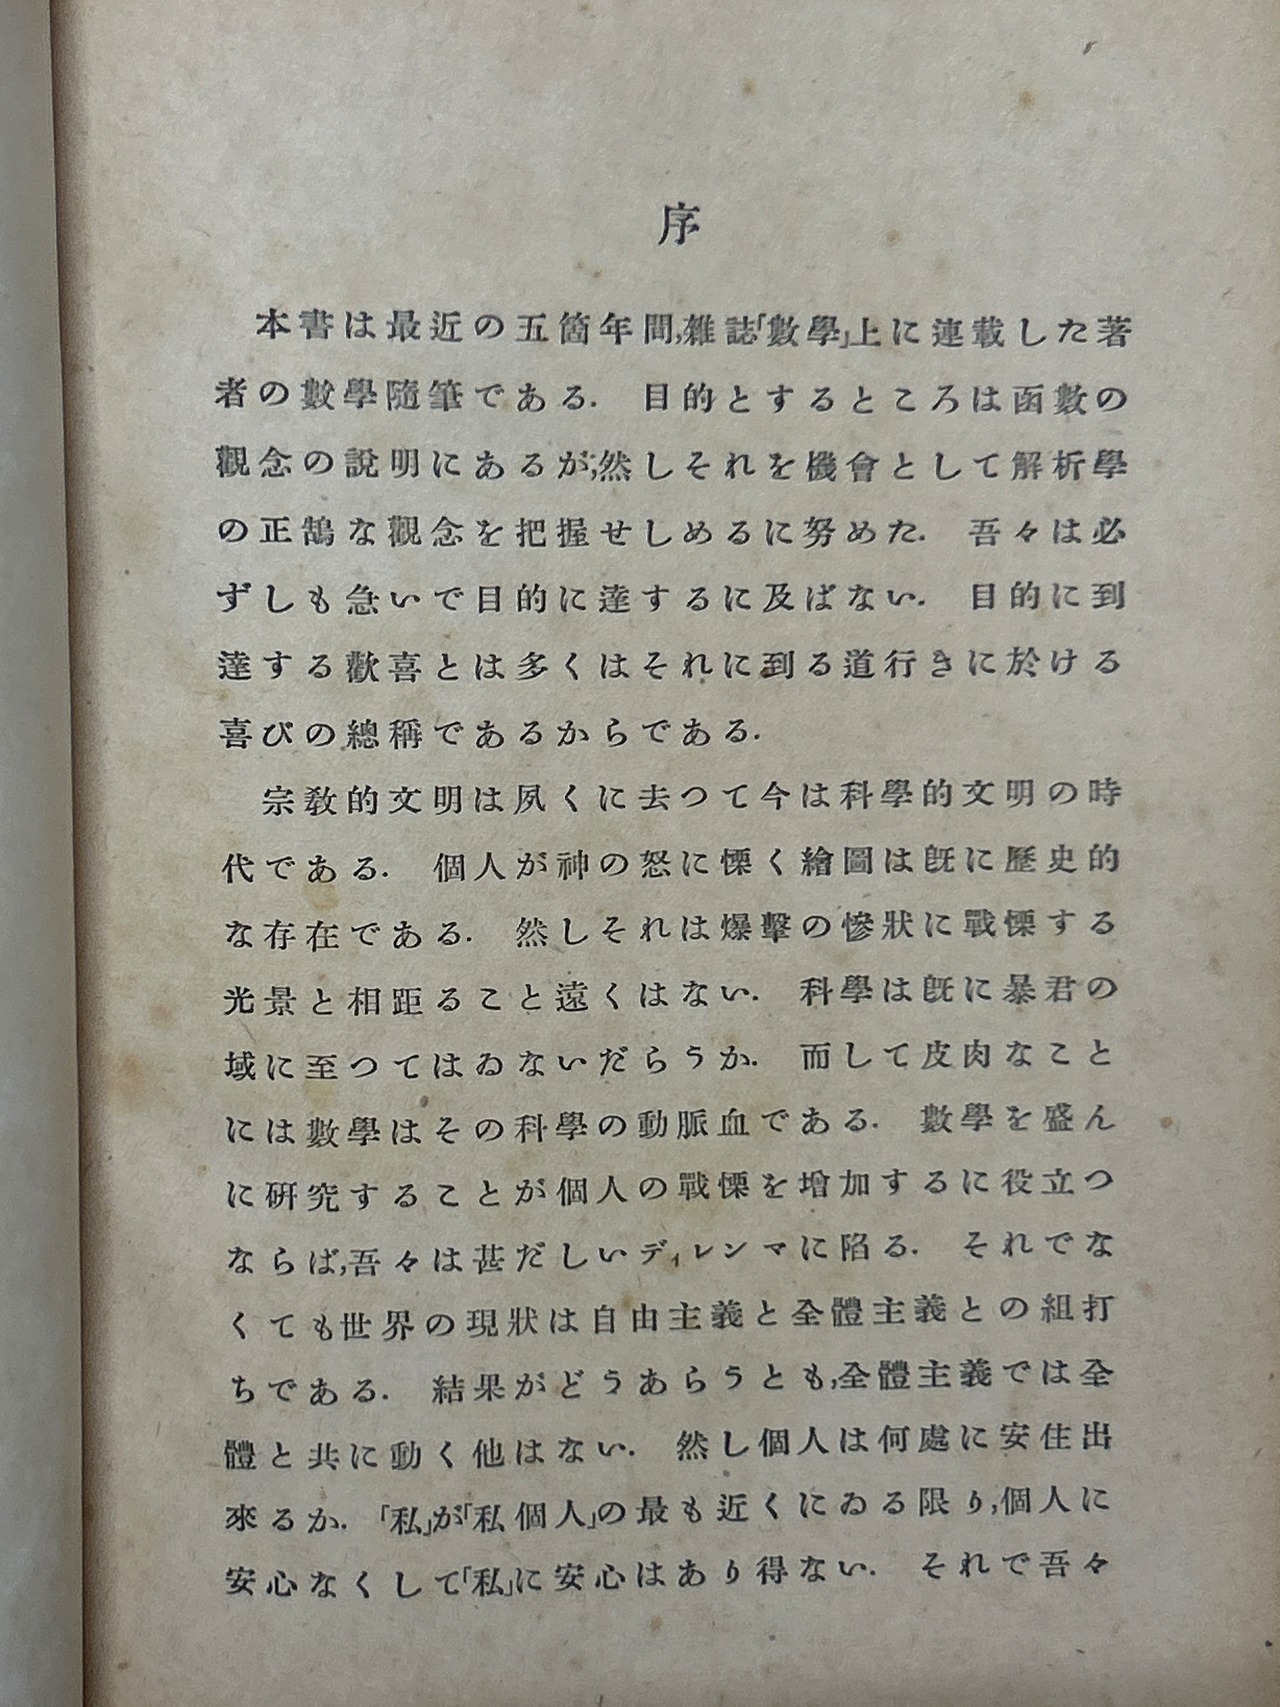 序
本書は最近の五箇年間,雜誌「數學」上に連載した著
者の數學隨筆である. 目的とするところは函數の
觀念の說明にあるが,然しそれを機會として解析學
の正鵠な觀念を把握せしめるに努めた. 吾々は必
ずしも急いで目的に達するに及ばない. 目的に到
達する歡喜とは多くはそれに到る道行きに於ける
喜びの總稱であるからである.
宗敎的文明は夙くに去つて今は科學的文明の時
代である. 個人が神の怒に慄く繪圖は旣に歷史的
な存在である. 然しそれは爆擊の慘狀に戰慄する
光景と相距ること遠くはない. 科學は旣に暴君の
域に至つてはゐないだらうか. 而して皮肉なこと
には數學はその科學の動脈血である. 數學を盛ん
に硏究することが個人の戰慄を增加するに役立つ
ならば,吾々は甚だしいディレンマに陷る. それでな
くても世界の現狀は自由主義と全體主義との組打
ちである. 結果がどうあらうとも,全體主義では全
體と共に動く他はない. 然し個人は何處に安住出
來るか. 「私」が「私個人」の最も近くにゐる限り,個人に
安心なくして「私」に安心はあり得ない. それで吾々